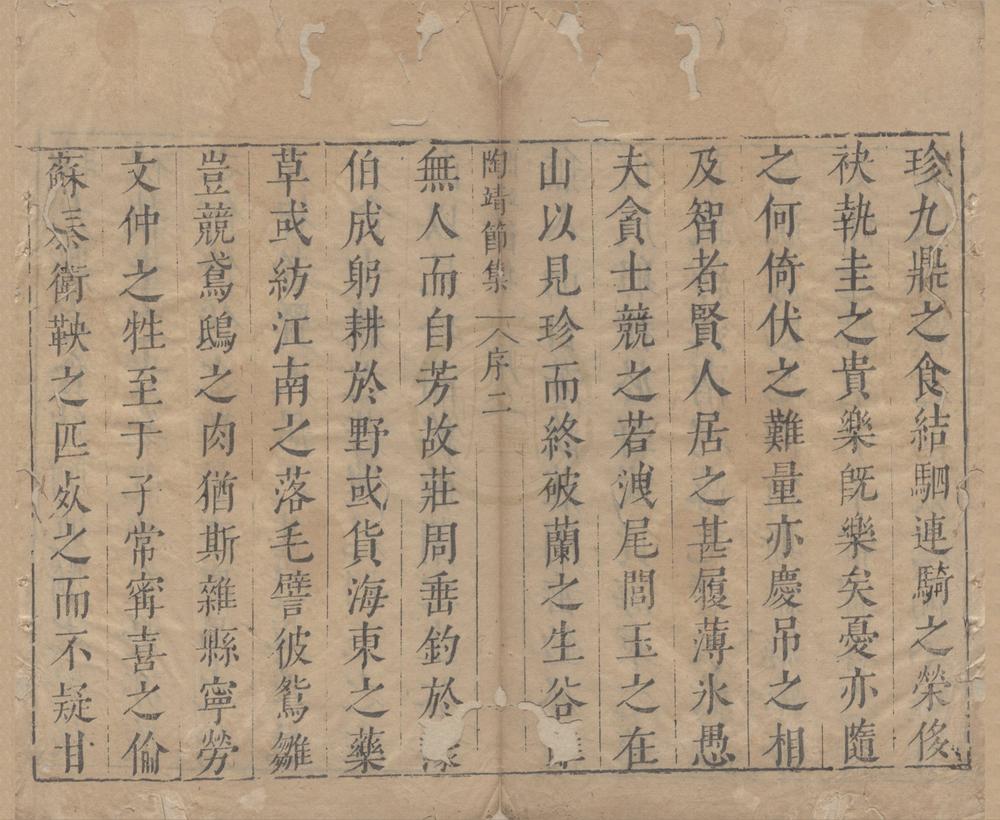 珍九鼎之食結駟連騎之榮侈
袂執圭之貴樂旣樂矣憂亦隨
之何倚伏之難量亦慶吊之相
及智者賢人居之甚履薄氷愚
夫貪士競之若洩尾閭玉之在
山以見珍而終破蘭之生谷
陶靖節集 序 二
無人而自芳故莊周垂釣於
伯成躬耕於野或貨海東之藥
草或紡江南之落毛譬彼鴛雛
豈競鳶鴟之肉猶斯雜縣寧勞
文仲之牲至于子常甯喜之倫
蘇秦衛鞅之匹死之而不疑甘